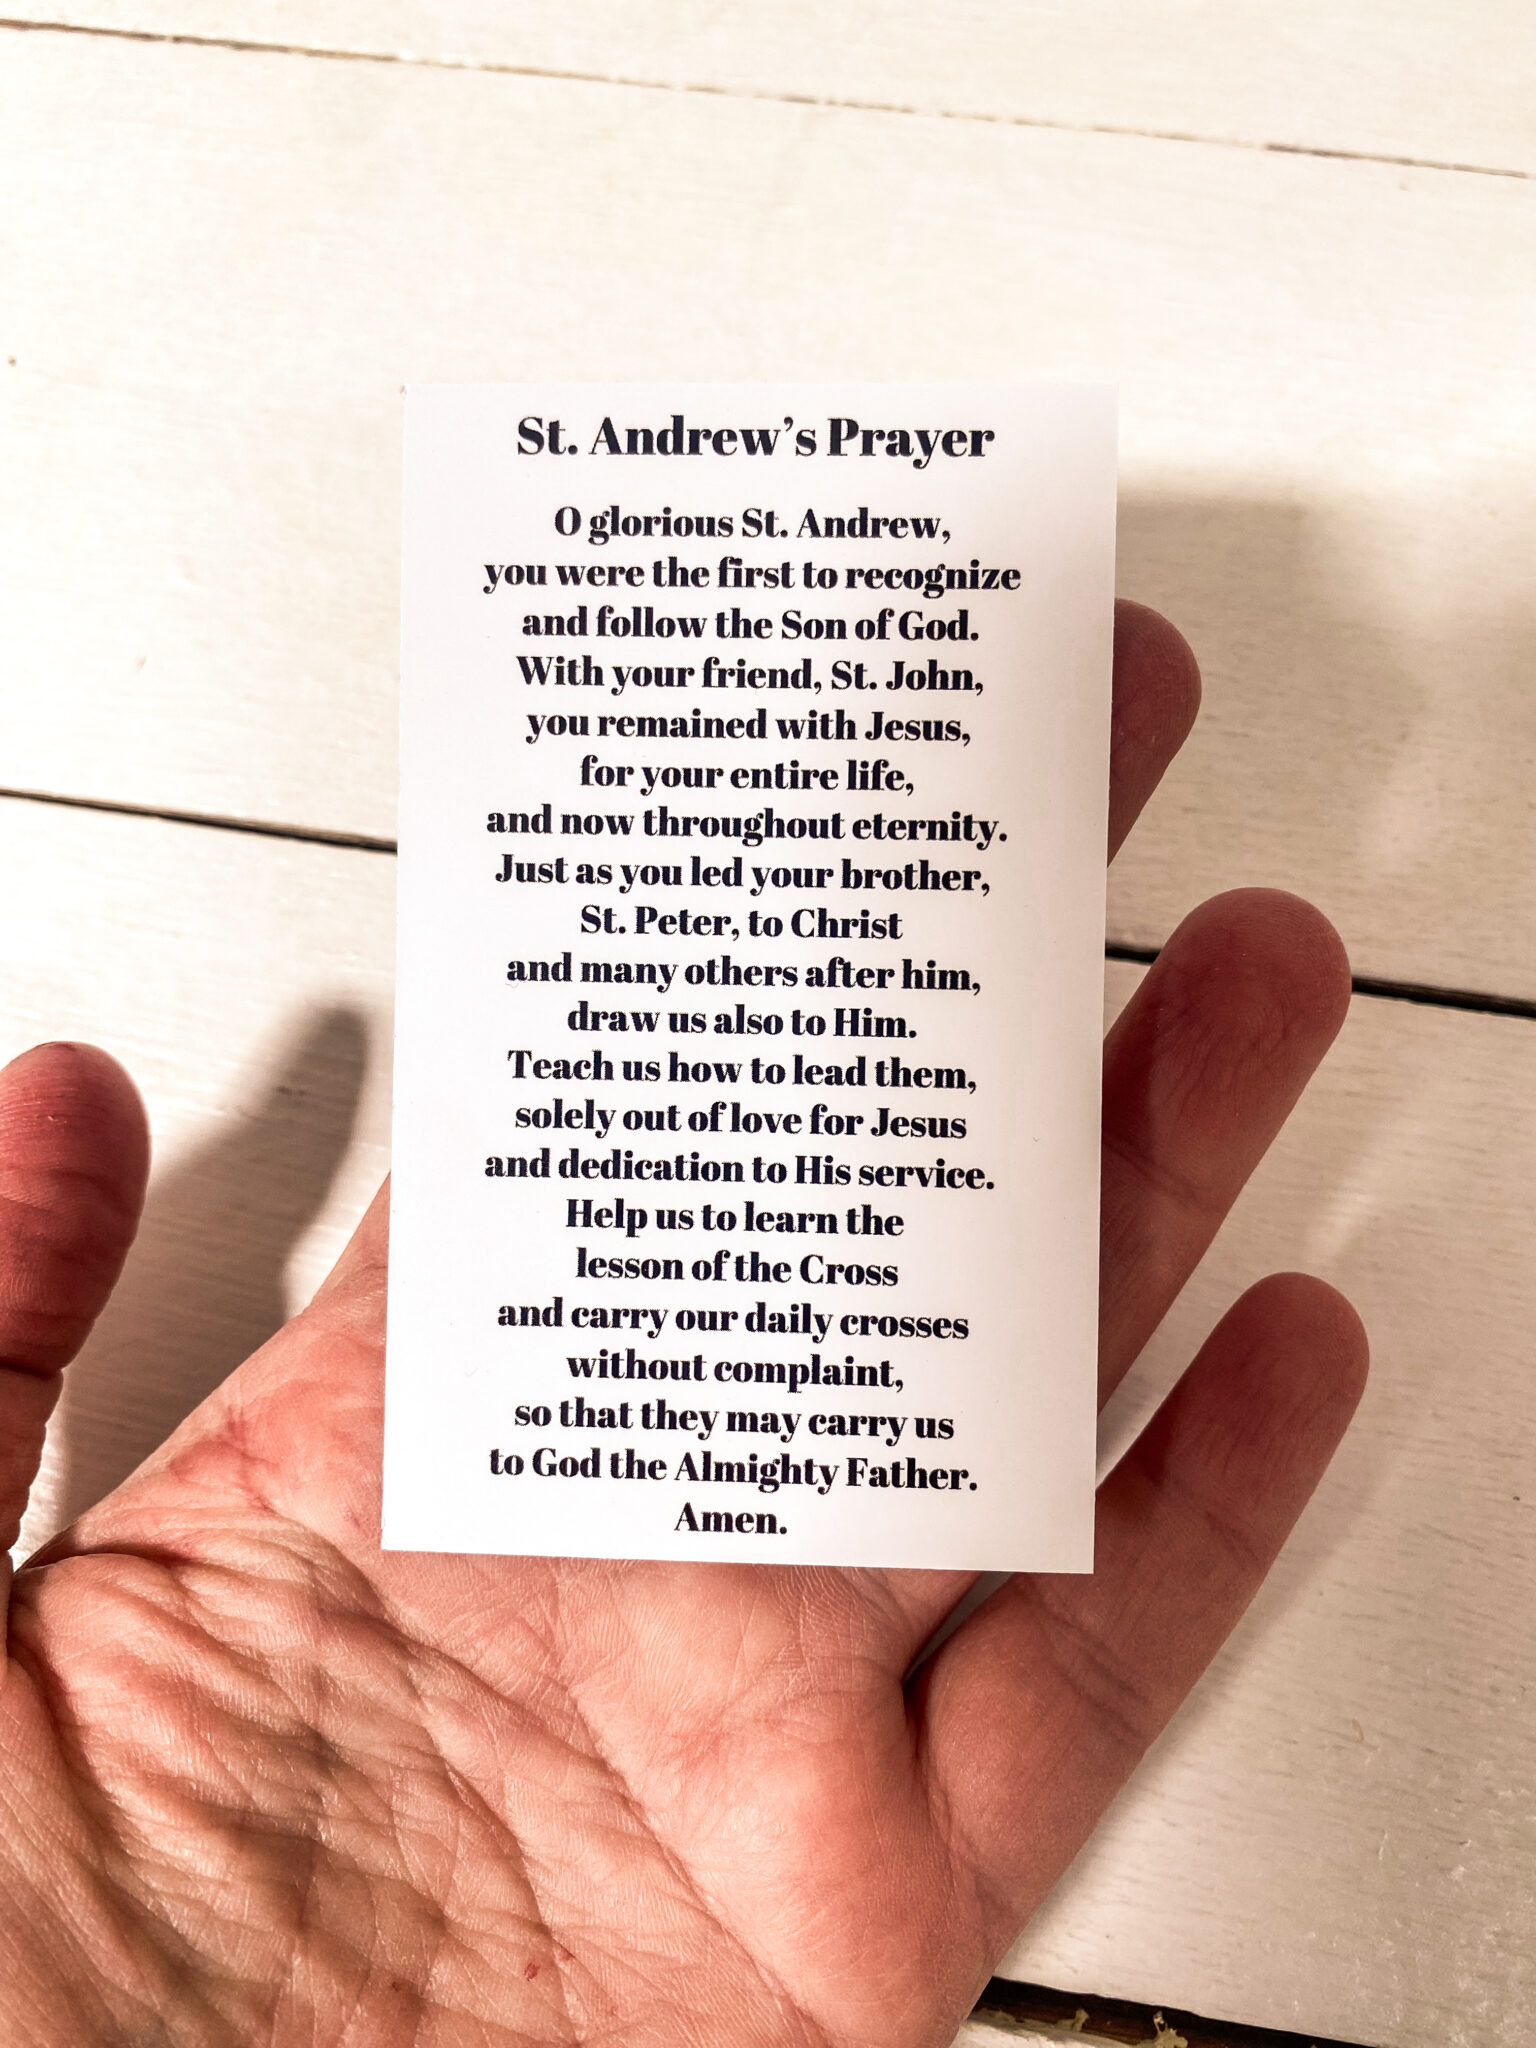 St. Andrew’s Prayer
O glorious St. Andrew,
you were the first to recognize
and follow the Son of God.
With your friend, St. John,
you remained with Jesus,
for your entire life,
and now throughout eternity.
Just as you led your brother,
St. Peter, to Christ
and many others after him,
draw us also to Him.
Teach us how to lead them,
solely out of love for Jesus
and dedication to His service.
Help us to learn the
lesson of the Cross
and carry our daily crosses
without complaint,
so that they may carry us
to God the Almighty Father.
Amen.